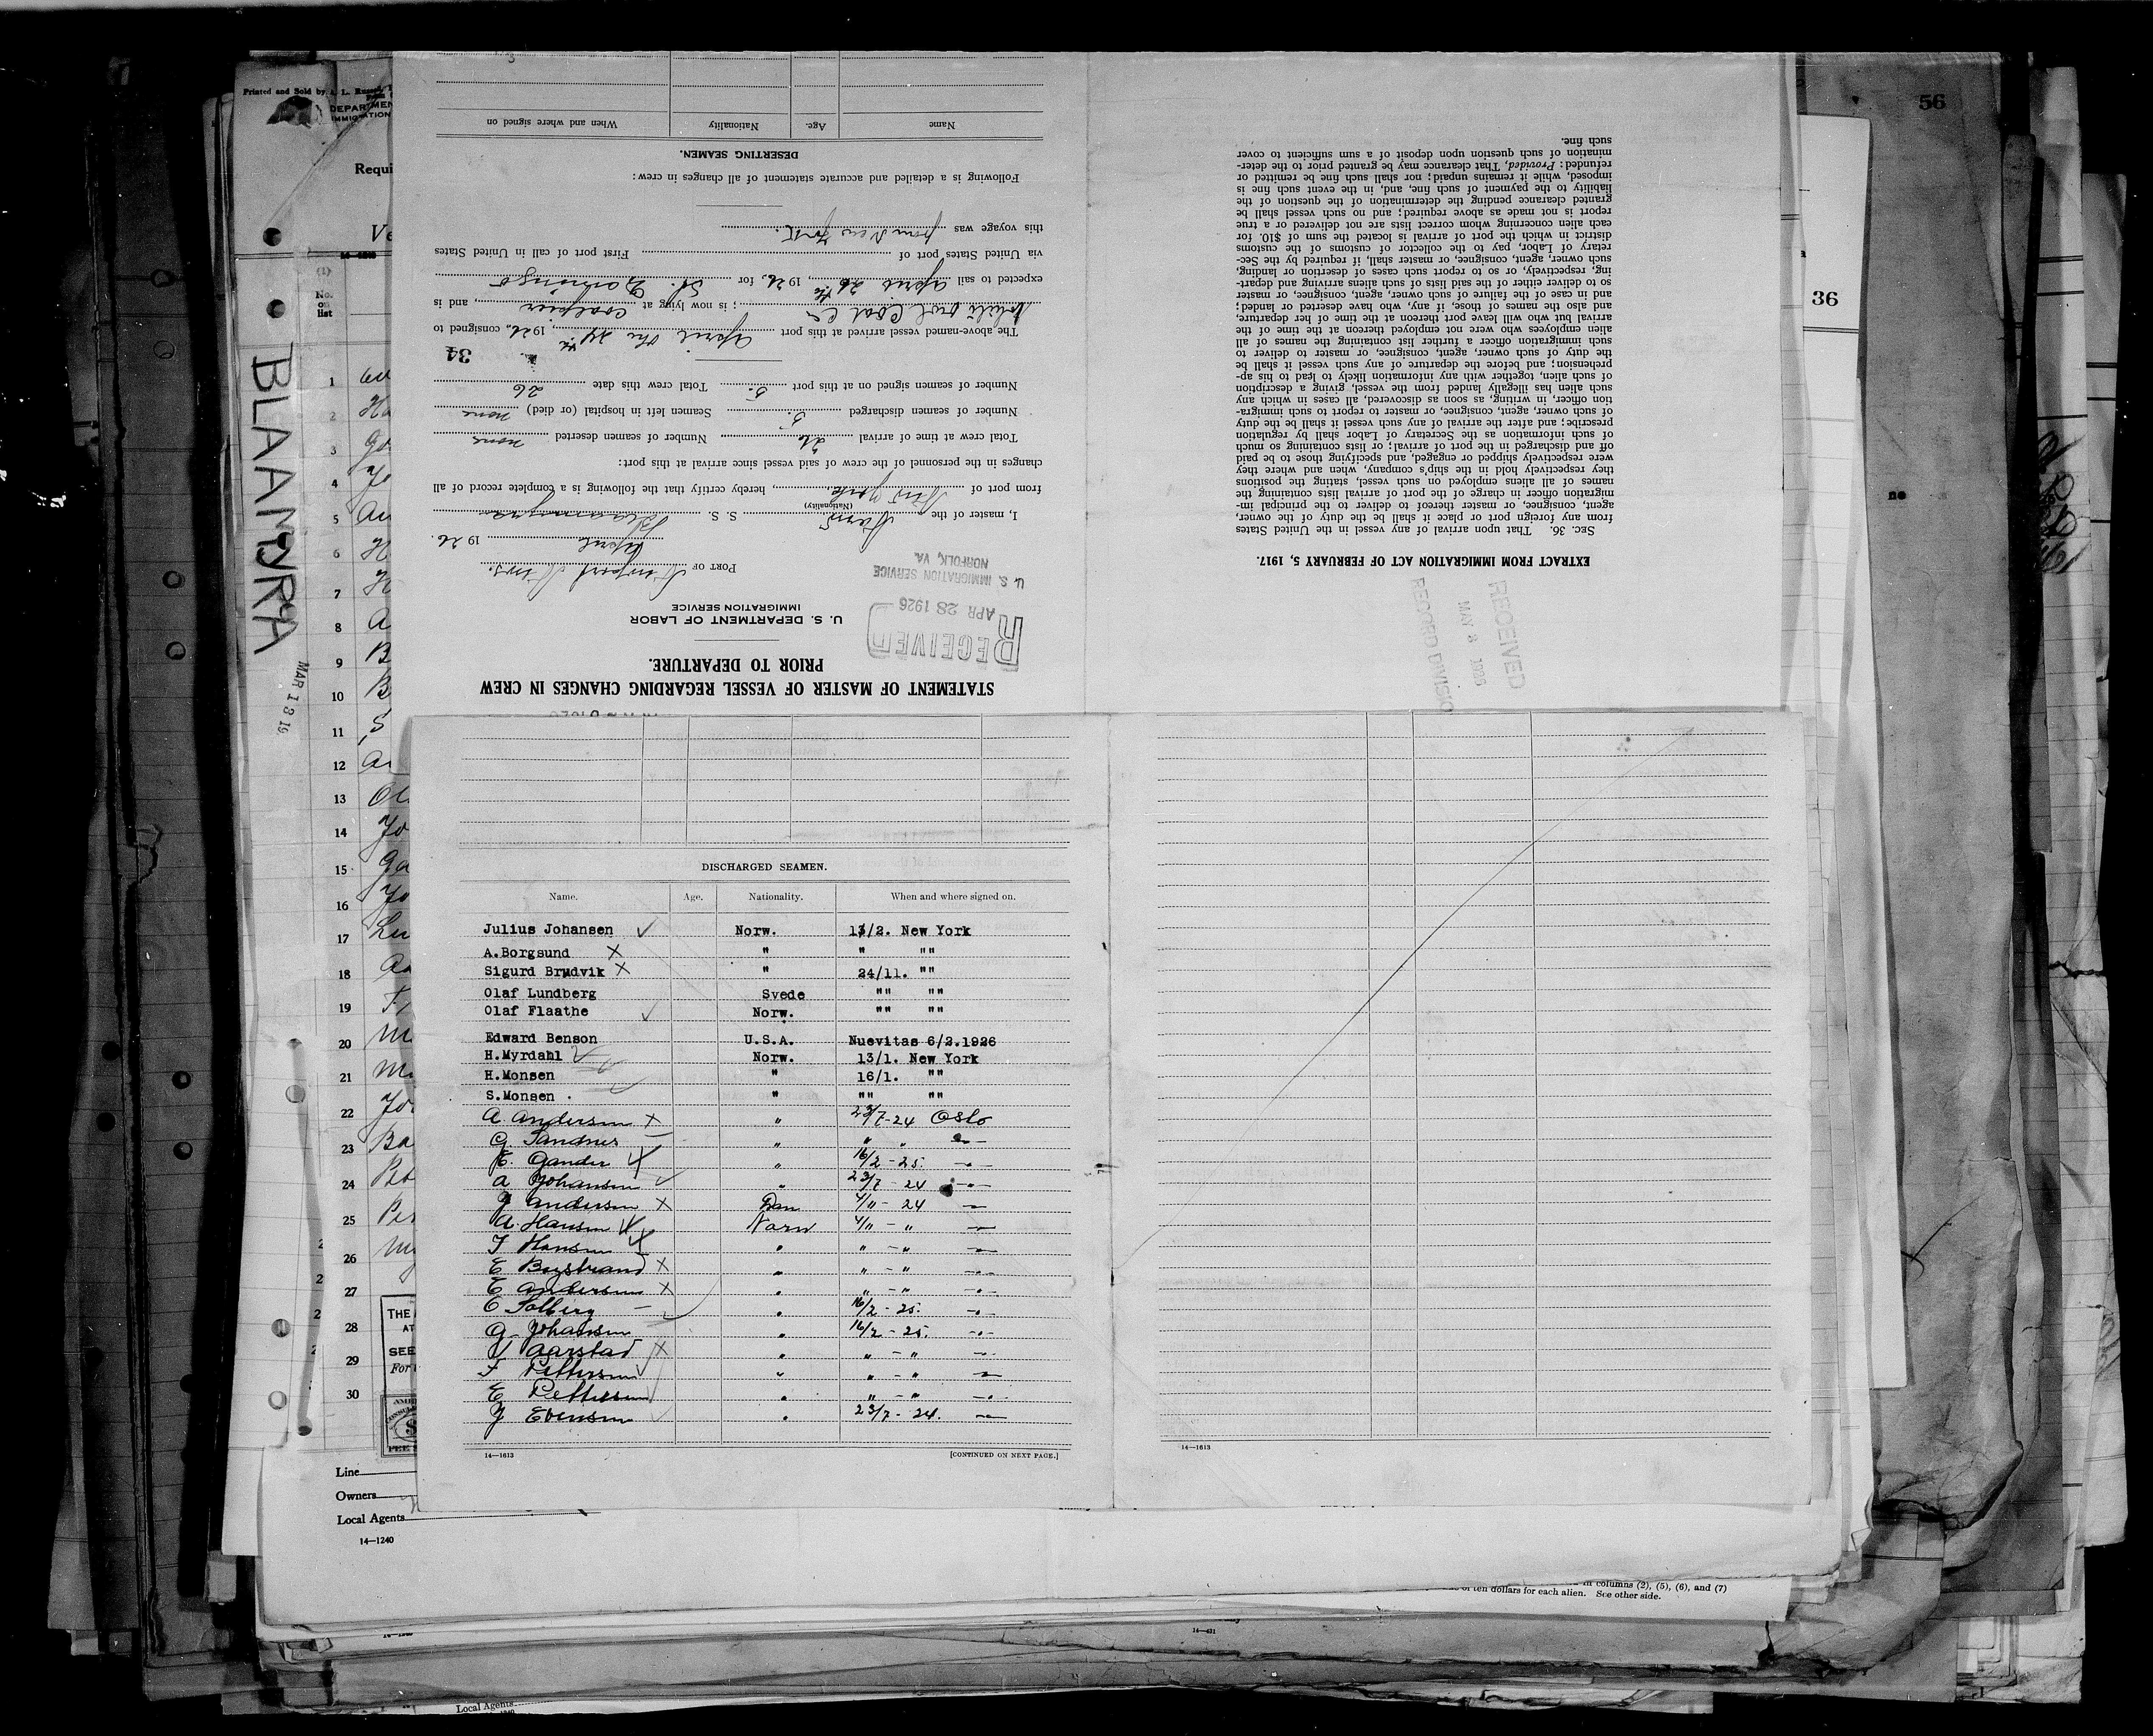 Printed and Sold by A. L. Russel
DEPARTMEN
IMMIGRATION
Requi
14—1240
(1)
No.
on
list
BLAAMYRA
MAR 13 19
1
2 Ha
3
4 Jo
5
6 H
7 H
8 A
9 B
10 B
11 S
12
13
14 Jo
15
16 Jo
17
18
19
20
21
22
23 Ba
24
25
26
27
28
29
30
THE
AT
SEE
For
Line
Owners
Local Agents
14—1240
STATEMENT OF MASTER OF VESSEL REGARDING CHANGES IN CREW
PRIOR TO DEPARTURE.
U. S. DEPARTMENT OF LABOR
IMMIGRATION SERVICE
RECEIVED
APR 28 1926
U. S. IMMIGRATION SERVICE
NORFOLK, VA.
PORT OF Newport News.
April 1926.
I, master of the Norw. S. S. Blaamyra
(Nationality)
from port of New York, hereby certify that the following is a complete record of all
changes in the personnel of the crew of said vessel since arrival at this port:
Total crew at time of arrival 26 Number of seamen deserted none
Number of seamen discharged 5 Seamen left in hospital (or died) none
Number of seamen signed on at this port 5. Total crew this date 26
34
The above-named vessel arrived at this port April the 24th, 1926, consigned to
White Oak Coal Co; is now lying at coalpier, and is
expected to sail April 26th, 1926, for St. Domingo
via United States port of First port of call in United States
this voyage was from New York.
Following is a detailed and accurate statement of all changes in crew:
DESERTING SEAMEN.
Name Age. Nationality When and where signed on
EXTRACT FROM IMMIGRATION ACT OF FEBRUARY 5, 1917.
SEC. 36. That upon arrival of any vessel in the United States
from any foreign port or place it shall be the duty of the owner,
agent, consignee, or master thereof to deliver to the principal im-
migration officer in charge of the port of arrival lists containing the
names of all aliens employed on such vessel, stating the positions
they respectively hold in the ship's company, when and where they
were respectively shipped or engaged, and specifying those to be paid
off and discharged in the port of arrival; or lists containing so much
of such information as the Secretary of Labor shall by regulation
prescribe; and after the arrival of any such vessel it shall be the duty
of such owner, agent, consignee, or master to report to such immigra-
tion officer, in writing, as soon as discovered, all cases in which any
such alien has illegally landed from the vessel, giving a description
of such alien, together with any information likely to lead to his ap-
prehension; and before the departure of any such vessel it shall be
the duty of such owner, agent, consignee, or master to deliver to
such immigration officer a further list containing the names of all
alien employees who were not employed thereon at the time of the
arrival but who will leave port thereon at the time of her departure,
and also the names of those, if any, who have deserted or landed;
and in case of the failure of such owner, agent, consignee, or master
to deliver either of the said lists of such aliens arriving and depart-
ing, respectively, or so to report such cases of desertion or landing,
such owner, agent, consignee, or master shall, if required by the Sec-
retary of Labor, pay to the collector of customs of the customs
district in which the port of arrival is located the sum of $10. for
each alien concerning whom correct lists are not delivered or a true
report is not made as above required; and no such vessel shall be
granted clearance pending the determination of the question of the
liability to the payment of such fine, and, in the event such fine is
imposed, while it remains unpaid; nor shall such fine be remitted or
refunded: Provided, That clearance may be granted prior to the deter-
mination of such question upon deposit of a sum sufficient to cover
such fine.
RECEIVED
MAY 8
RECORD DIVISIO
DISCHARGED SEAMEN.
Name. Age. Nationality. When and where signed on.
Julius Johansen Norw. 13/2. New York
A.Borgsund " " ""
Sigurd Brudvik " 24/11. ""
Olaf Lundberg Svede "" ""
Olaf Flaathe Norw. "" ""
Edward Benson U.S.A. Nuevitas 6/2.1926
H.Myrdahl Norw. 13/1. New York
H.Monsen " 16/1. ""
S.Monsen " "" ""
A. Andersen " 23/7-24 Oslo
G. Sandnes " " " —"—
E. Gander " 16/2-25. —"—
A Johansen " 23/7-24 —"—
J Andersen Dan 4/11-24 —"—
A. Hansen Norw 4/11-" —"—
T Hansen " "-" —"—
E Bergstrand " "-" —"—
E Andersen " "-" —"—
C Solberg " 16/2-25. —"—
G. Johansen " 16/2-25. —"—
Aarstad " "-" —"—
F Pettersen " "-" —"—
E Pettersen " "-" —"—
J Evensen " 23/7-24. —"—
14—1613 [CONTINUED ON NEXT PAGE.]
14—1613
56
36
no
in columns (2), (5), (6), and (7)
of ten dollars for each alien. See other side.
14—431
Local Agents